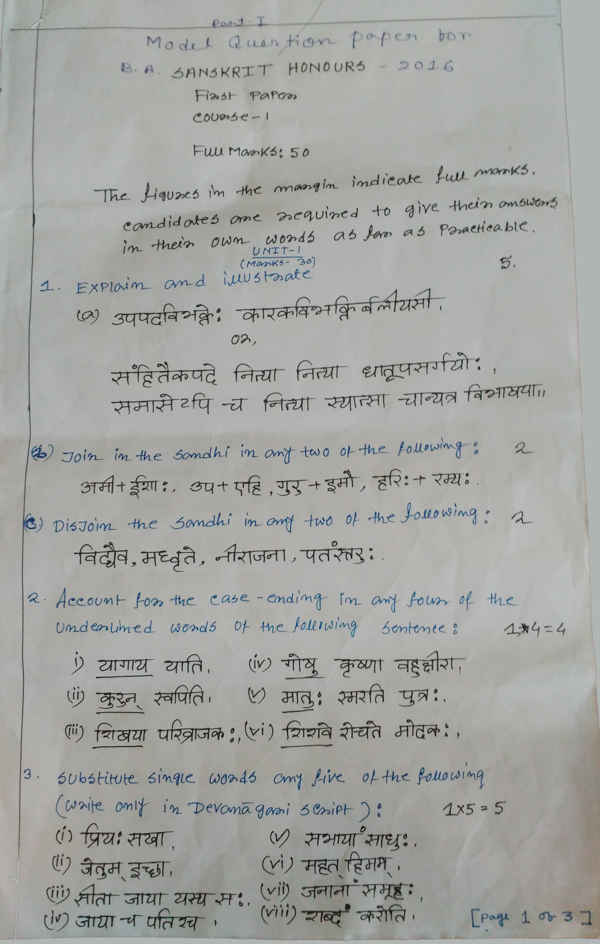 Part I
Model Question paper for
B.A. SANSKRIT HONOURS - 2016
First Paper
Course-1
Full Marks: 50
The figures in the margin indicate full marks.
candidates are required to give their answers
in their own words as far as Practicable.
UNIT-1
(Marks- 30)
1. Explain and illustrate 5.
(a) उपपदविभक्तेः कारकविभक्तिर्बलीयसी,
or,
संहितैकपदे नित्या नित्या धातूपसर्गयोः,
समासेऽपि च नित्या स्यात्सा चान्यत्र विभाषया॥
(b) Join in the sandhi in any two of the following: 2
अमी+ईशाः, उप+एहि, गुरु+इमौ, हरिः+रम्यः.
(c) Disjoin the sandhi in any two of the following: 2
विद्यैव, मध्वृते, नीराजना, पतंस्तरुः.
2. Account for the case-ending in any four of the
underlined words of the following sentence: 1×4=4
i) यागाय याति, (iv) गोषु कृष्णा वहुक्षीरा,
(ii) कुरुन् स्वपिति, (v) मातुः स्मरति पुत्रः,
(iii) शिखया परिव्राजकः, (vi) शिशवे रोचते मोदकः,
3. Substitute single words any five of the following
(write only in Devanāgari script): 1×5=5
(i) प्रियः सखा, (v) सभायां साधुः,
(ii) जेतुम् इच्छा, (vi) महत् हिमम्,
(iii) सीता जाया यस्य सः, (vii) जनानां समूहः,
(iv) जाया च पतिश्च, (viii) शब्दं करोति, [Page 1 of 3]